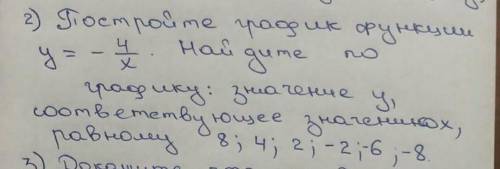 2) Постройте график функции
y = - 4/x. Найдите по
графику: значение y,
соответствующее значению x,
равному 8; 4; 2; -2; -6; -8.
3) Докажите